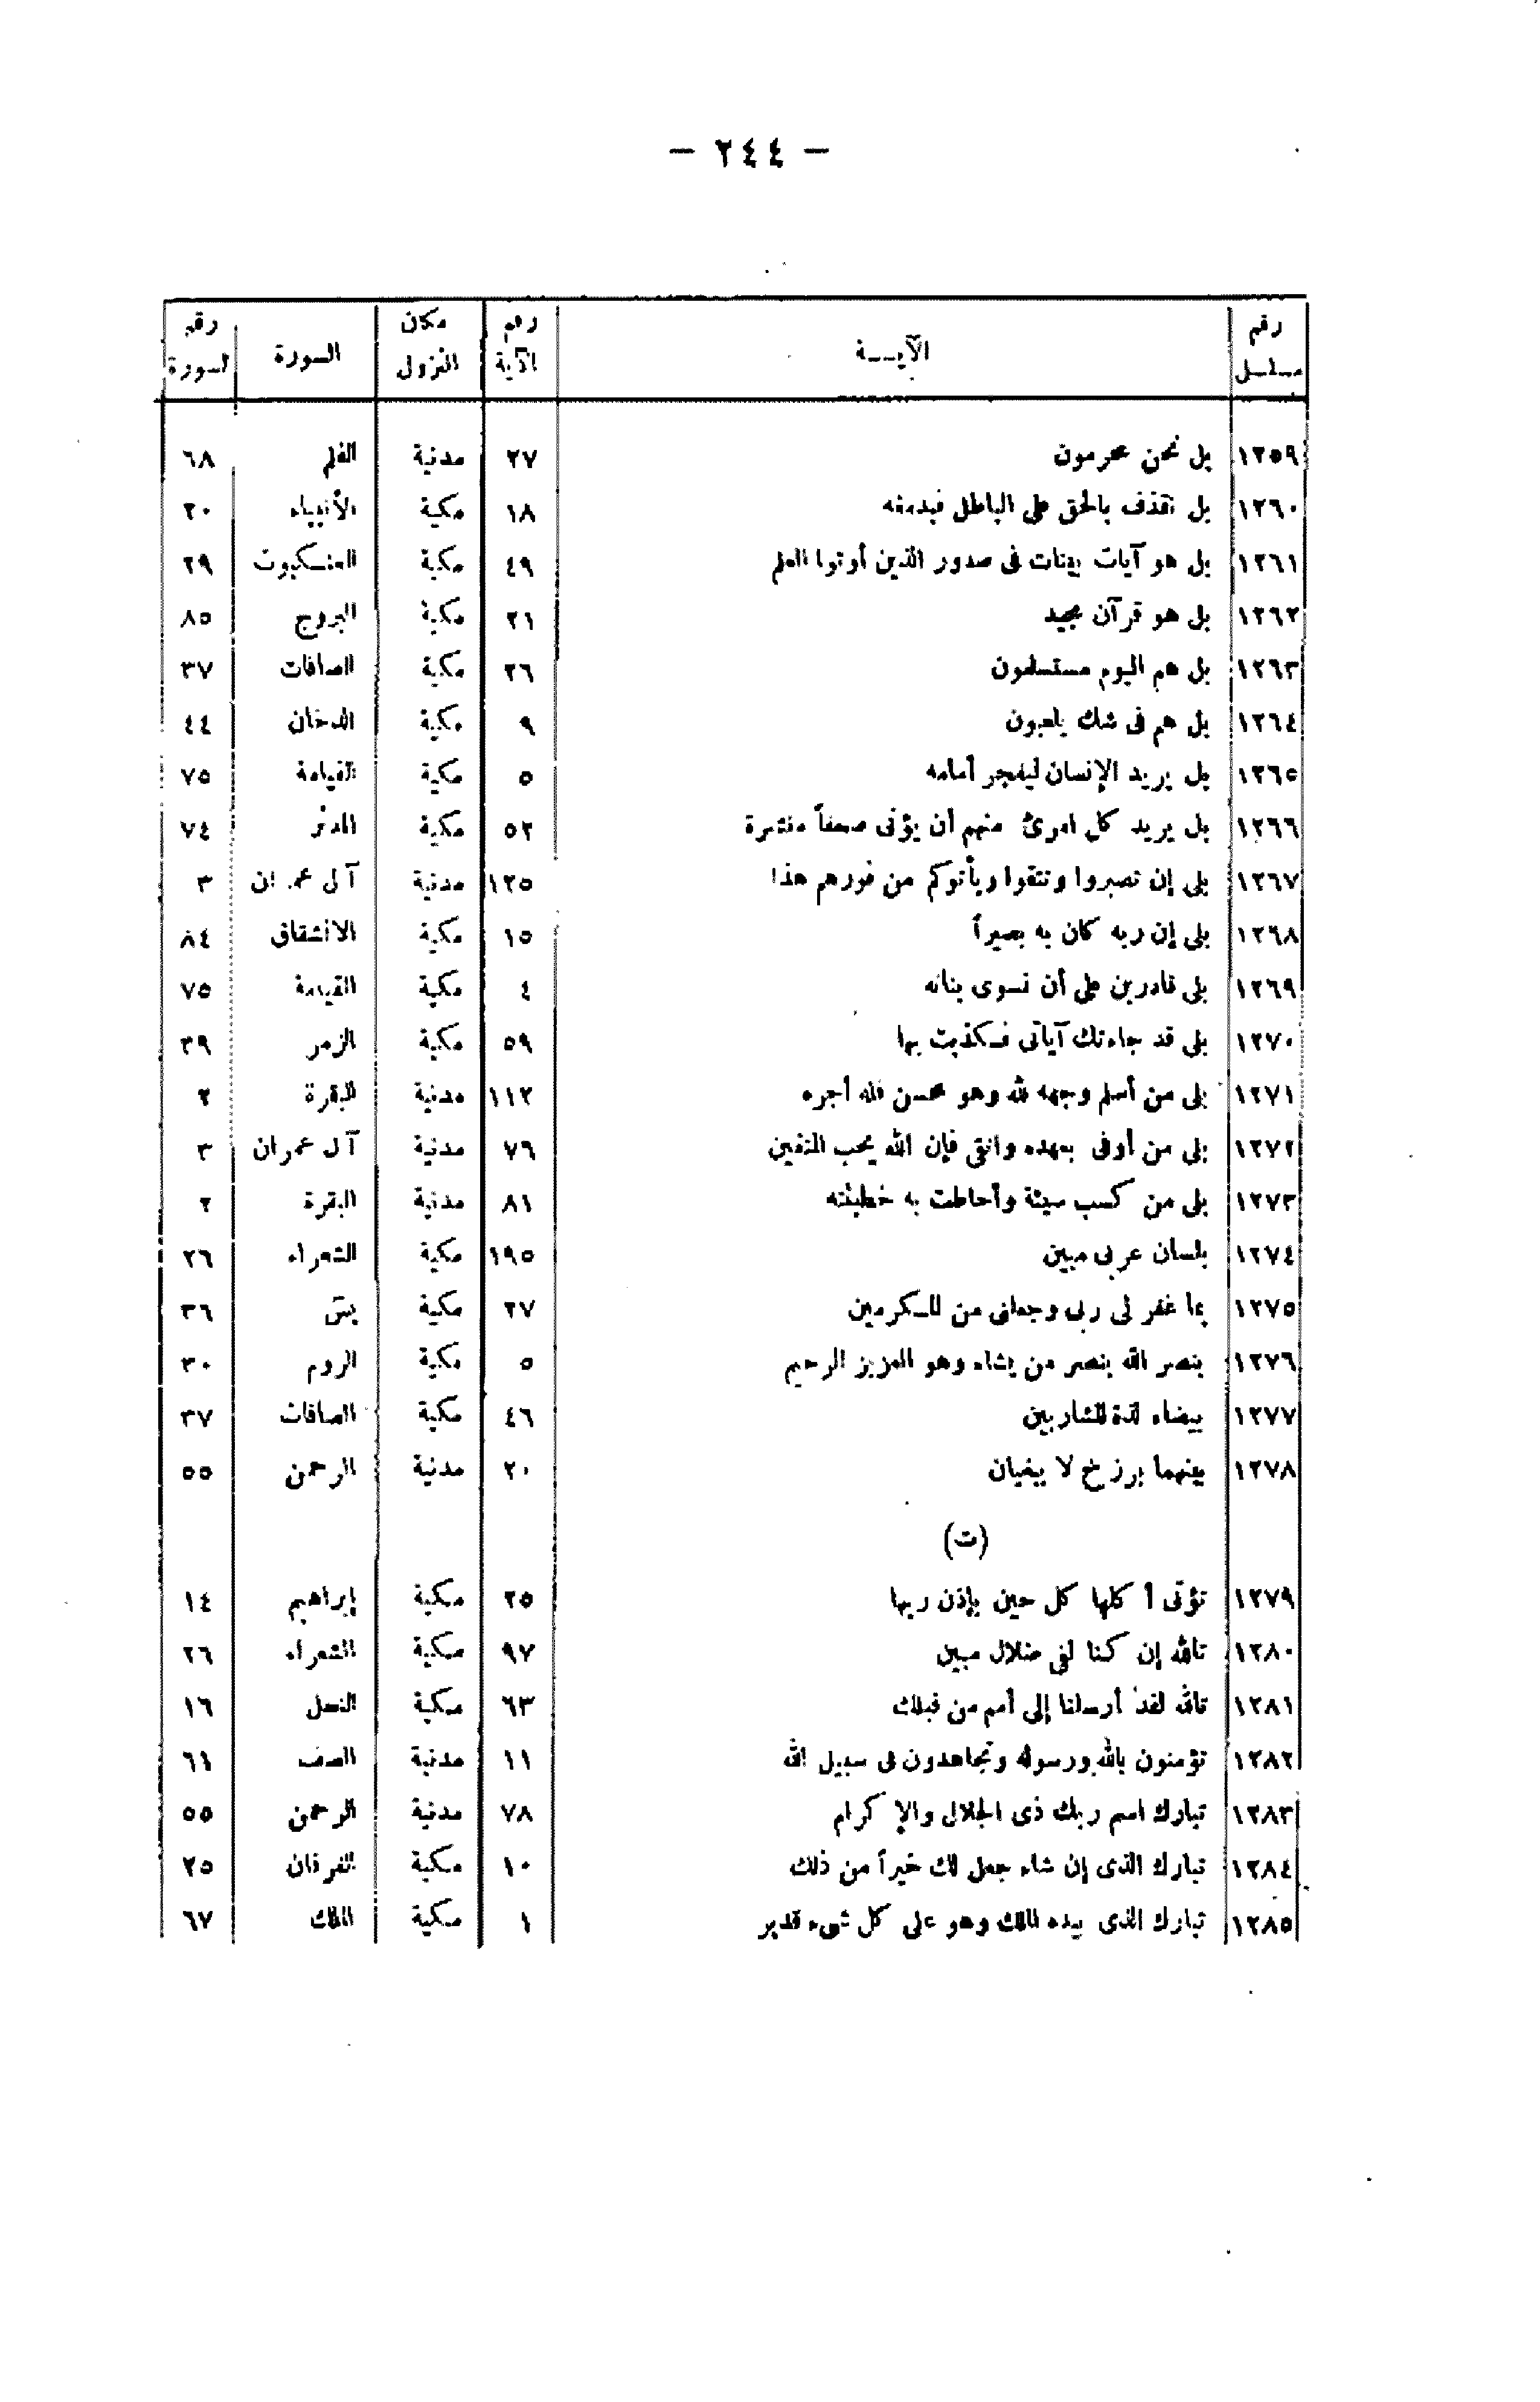 — ٢٤٤ —
رقم مسلسل | الآيــة | رقم الآية | مكان النزول | السورة | رقم السورة
١٢٥٩ | بل نحن محرمون | ٢٧ | مدنية | القلم | ٦٨
١٢٦٠ | بل نقذف بالحق على الباطل فيدمغه | ١٨ | مكية | الأنبياء | ٢٠
١٢٦١ | بل هو آيات بينات فى صدور الذين أوتوا العلم | ٤٩ | مكية | العنكبوت | ٢٩
١٢٦٢ | بل هو قرآن مجيد | ٢١ | مكية | البروج | ٨٥
١٢٦٣ | بل هم اليوم مستسلمون | ٢٦ | مكية | الصافات | ٣٧
١٢٦٤ | بل هم فى شك يلعبون | ٩ | مكية | الدخان | ٤٤
١٢٦٥ | بل يريد الإنسان ليفجر أمامه | ٥ | مكية | القيامة | ٧٥
١٢٦٦ | بل يريد كل امرئ منهم أن يؤتى صحفاً منشرة | ٥٢ | مكية | المدثر | ٧٤
١٢٦٧ | بلى إن تصبروا وتتقوا ويأتوكم من فورهم هذا | ١٢٥ | مدنية | آل عمران | ٣
١٢٦٨ | بلى إن ربه كان به بصيراً | ١٥ | مكية | الانشقاق | ٨٤
١٢٦٩ | بلى قادرين على أن نسوى بنانه | ٤ | مكية | القيامة | ٧٥
١٢٧٠ | بلى قد جاءتك آياتى فكذبت بها | ٥٩ | مكية | الزمر | ٣٩
١٢٧١ | بلى من أسلم وجهه لله وهو محسن فله أجره | ١١٢ | مدنية | البقرة | ٢
١٢٧٢ | بلى من أوفى بعهده واتقى فإن الله يحب المتقين | ٧٦ | مدنية | آل عمران | ٣
١٢٧٣ | بلى من كسب سيئة وأحاطت به خطيئته | ٨١ | مدنية | البقرة | ٢
١٢٧٤ | بلسان عربى مبين | ١٩٥ | مكية | الشعراء | ٢٦
١٢٧٥ | بما غفر لى ربى وجعلنى من المكرمين | ٢٧ | مكية | يس | ٣٦
١٢٧٦ | بنصر الله ينصر من يشاء وهو العزيز الرحيم | ٥ | مكية | الروم | ٣٠
١٢٧٧ | بيضاء لذة للشاربين | ٤٦ | مكية | الصافات | ٣٧
١٢٧٨ | بينهما برزخ لا يبغيان | ٢٠ | مدنية | الرحمن | ٥٥
(ت)
١٢٧٩ | تؤتى أكلها كل حين بإذن ربها | ٢٥ | مكية | إبراهيم | ١٤
١٢٨٠ | تالله إن كنا لفى ضلال مبين | ٩٧ | مكية | الشعراء | ٢٦
١٢٨١ | تالله لقد أرسلنا إلى أمم من قبلك | ٦٣ | مكية | النحل | ١٦
١٢٨٢ | تؤمنون بالله ورسوله وتجاهدون فى سبيل الله | ١١ | مدنية | الصف | ٦١
١٢٨٣ | تبارك اسم ربك ذى الجلال والإكرام | ٧٨ | مدنية | الرحمن | ٥٥
١٢٨٤ | تبارك الذى إن شاء جعل لك خيراً من ذلك | ١٠ | مكية | الفرقان | ٢٥
١٢٨٥ | تبارك الذى بيده الملك وهو على كل شىء قدير | ١ | مكية | الملك | ٦٧